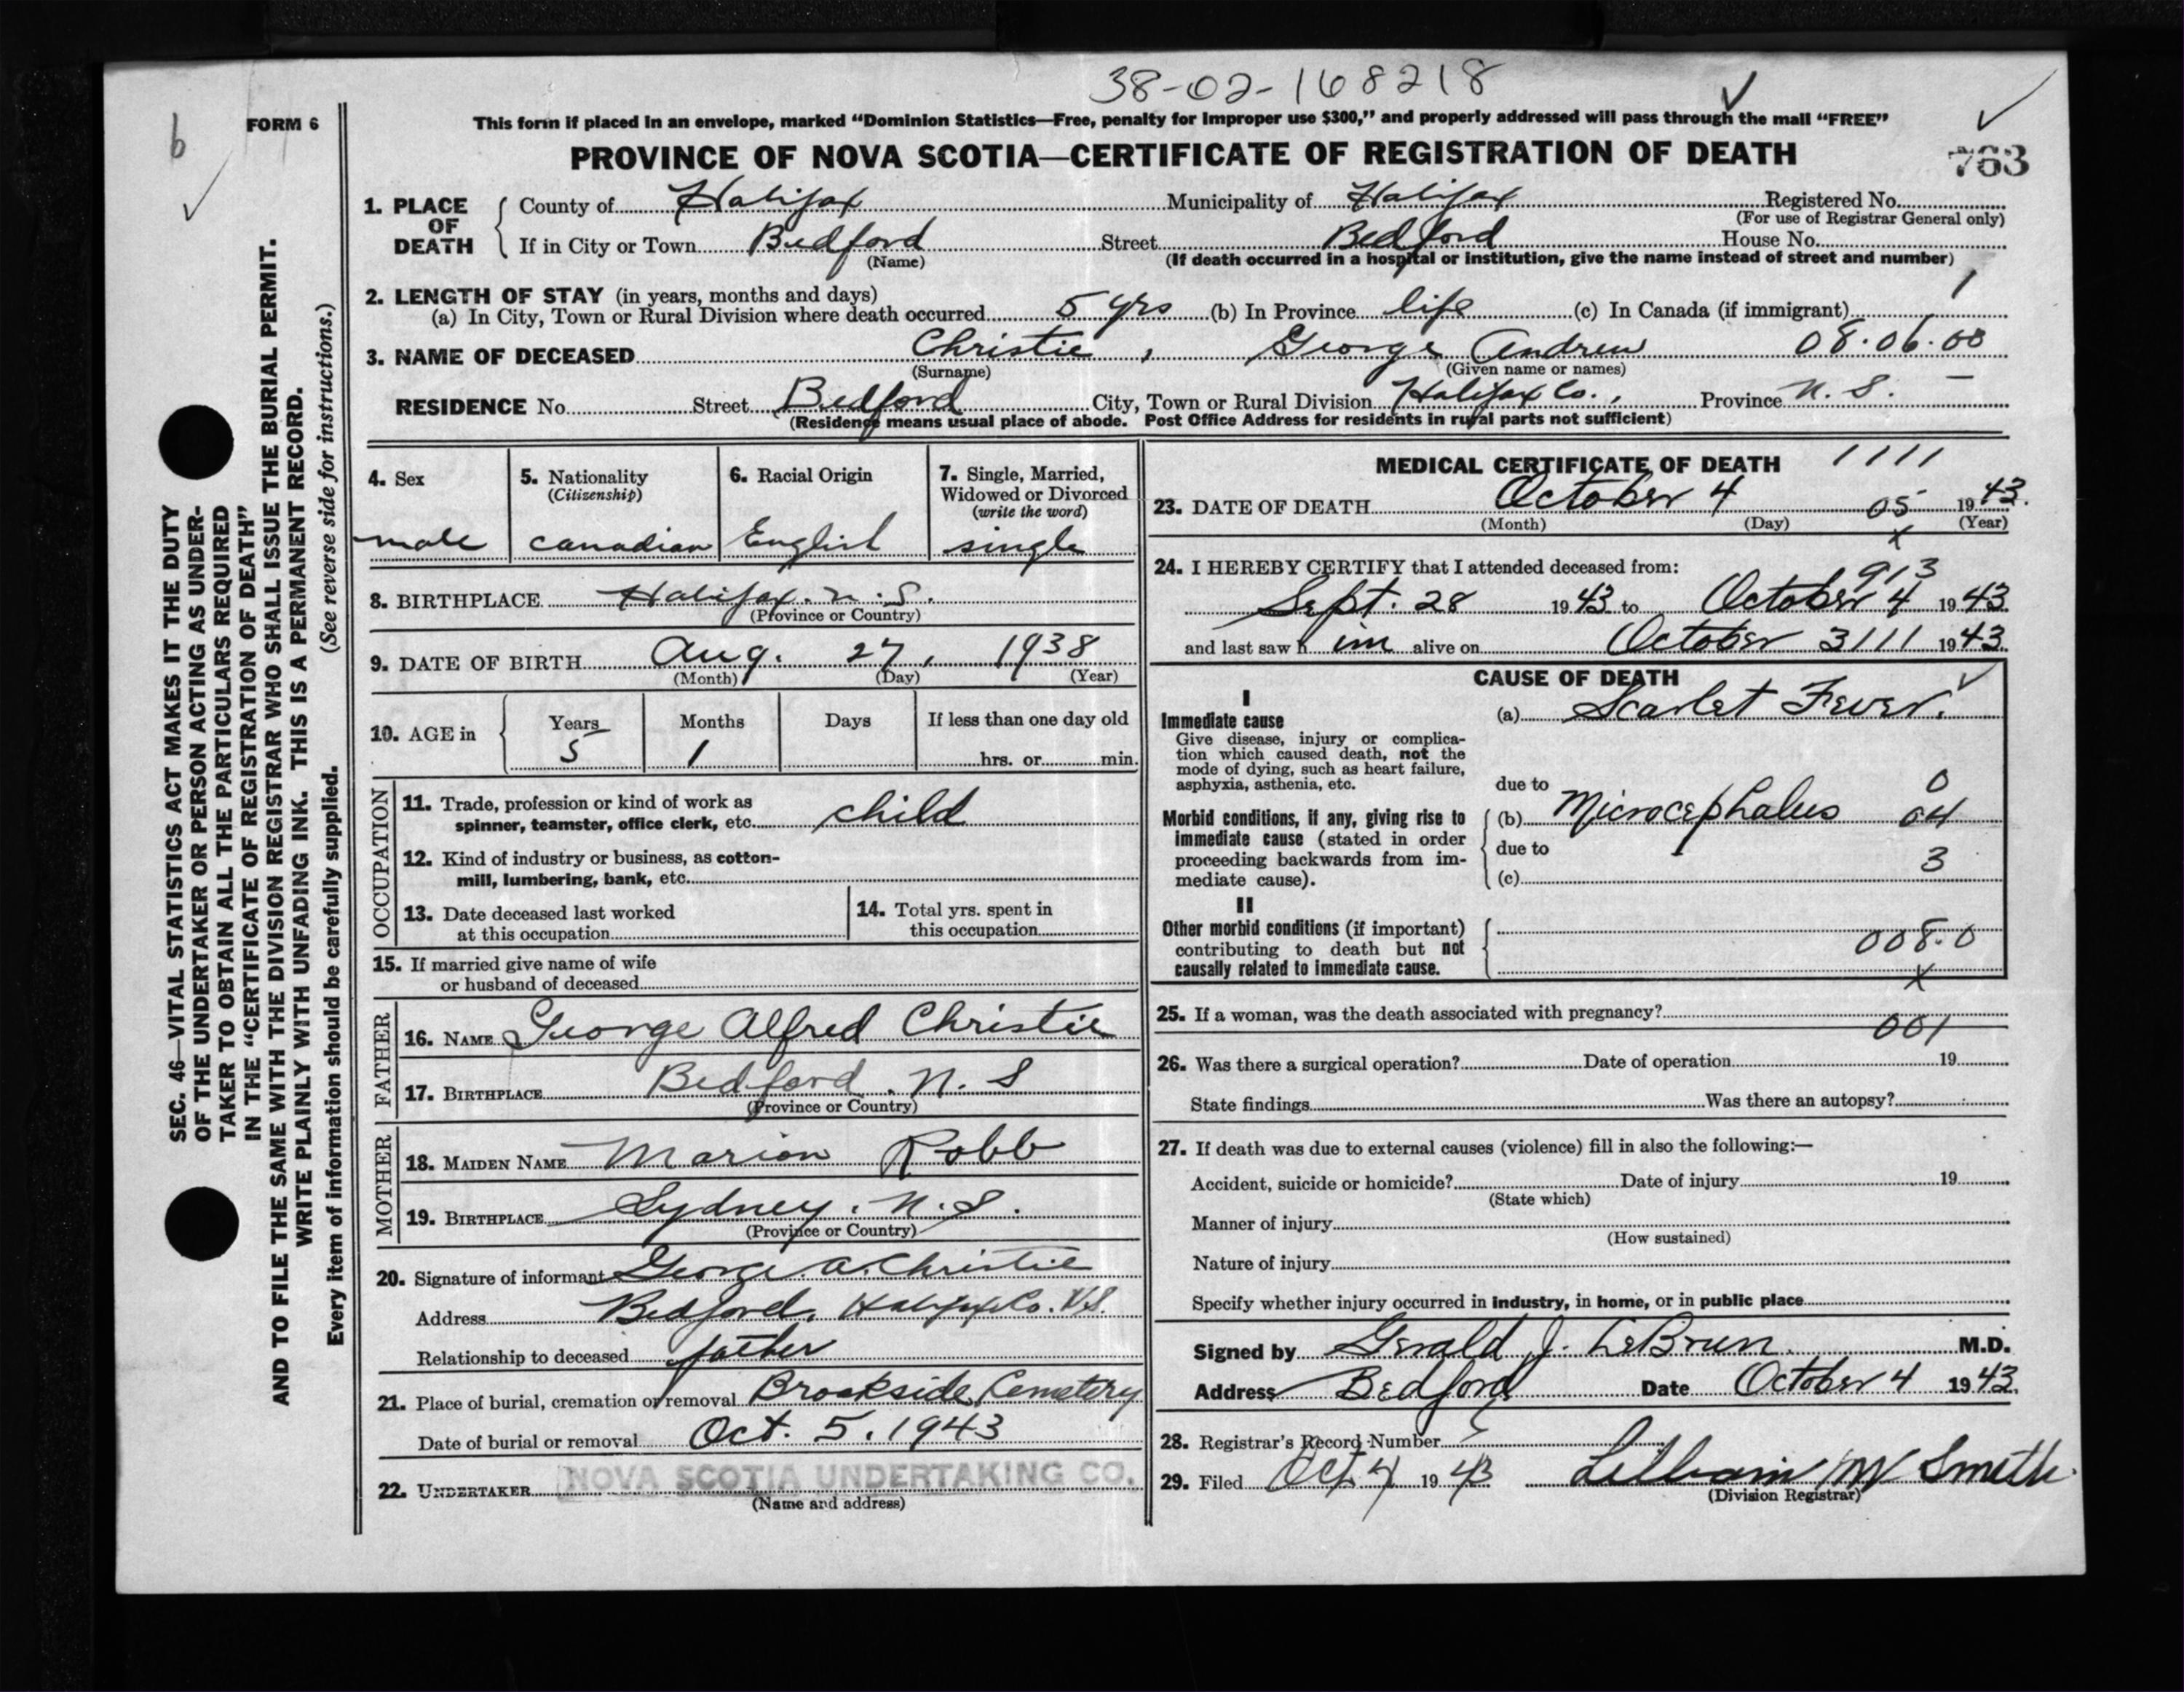 38-02-168218
b
FORM 6
This form if placed in an envelope, marked "Dominion Statistics—Free, penalty for improper use $300," and properly addressed will pass through the mail "FREE"
PROVINCE OF NOVA SCOTIA—CERTIFICATE OF REGISTRATION OF DEATH
763
1. PLACE OF DEATH
County of Halifax Municipality of Halifax Registered No.
(For use of Registrar General only)
If in City or Town Bedford Street Bedford House No.
(Name) (If death occurred in a hospital or institution, give the name instead of street and number)
2. LENGTH OF STAY (in years, months and days)
(a) In City, Town or Rural Division where death occurred 5 yrs (b) In Province life (c) In Canada (if immigrant)
3. NAME OF DECEASED Christie, George Andrew 08.06.00
(Surname) (Given name or names)
RESIDENCE No. Street Bedford City, Town or Rural Division Halifax Co., Province N. S.
(Residence means usual place of abode. Post Office Address for residents in rural parts not sufficient)
4. Sex
male
5. Nationality
(Citizenship)
canadian
6. Racial Origin
English
7. Single, Married,
Widowed or Divorced
(write the word)
single
8. BIRTHPLACE Halifax. N. S.
(Province or Country)
9. DATE OF BIRTH Aug. 27, 1938
(Month) (Day) (Year)
10. AGE in
Years Months Days If less than one day old
5 1 hrs. or min.
OCCUPATION
11. Trade, profession or kind of work as
spinner, teamster, office clerk, etc. child
12. Kind of industry or business, as cotton-
mill, lumbering, bank, etc.
13. Date deceased last worked
at this occupation
14. Total yrs. spent in
this occupation
15. If married give name of wife
or husband of deceased
FATHER
16. NAME George Alfred Christie
17. BIRTHPLACE Bedford, N. S
(Province or Country)
MOTHER
18. MAIDEN NAME Marion Robb
19. BIRTHPLACE Sydney. N. S.
(Province or Country)
20. Signature of informant George A. Christie
Address Bedford, Halifax Co. N.S.
Relationship to deceased father
21. Place of burial, cremation or removal Brookside Cemetery
Date of burial or removal Oct. 5. 1943
22. UNDERTAKER NOVA SCOTIA UNDERTAKING CO.
(Name and address)
MEDICAL CERTIFICATE OF DEATH 1111
23. DATE OF DEATH October 4 05 1943.
(Month) (Day) (Year)
x
24. I HEREBY CERTIFY that I attended deceased from:
913
Sept. 28 1943 to October 4 1943
and last saw him alive on October 3 111 1943.
CAUSE OF DEATH
I
Immediate cause
Give disease, injury or complica-
tion which caused death, not the
mode of dying, such as heart failure,
asphyxia, asthenia, etc.
(a) Scarlet Fever.
due to
0
Morbid conditions, if any, giving rise to
immediate cause (stated in order
proceeding backwards from im-
mediate cause).
(b) Microcephalus 04
due to
3
(c)
II
Other morbid conditions (if important)
contributing to death but not
causally related to immediate cause.
008.0
x
25. If a woman, was the death associated with pregnancy?
001
26. Was there a surgical operation? Date of operation 19
State findings Was there an autopsy?
27. If death was due to external causes (violence) fill in also the following:—
Accident, suicide or homicide? Date of injury 19
(State which)
Manner of injury
(How sustained)
Nature of injury
Specify whether injury occurred in industry, in home, or in public place
Signed by Gerald J. LeBrun M.D.
Address Bedford Date October 4 1943.
28. Registrar's Record Number
29. Filed Oct 4 1943 Lillian M Smith.
(Division Registrar)
SEC. 46—VITAL STATISTICS ACT MAKES IT THE DUTY
OF THE UNDERTAKER OR PERSON ACTING AS UNDER-
TAKER TO OBTAIN ALL THE PARTICULARS REQUIRED
IN THE "CERTIFICATE OF REGISTRATION OF DEATH"
AND TO FILE THE SAME WITH THE DIVISION REGISTRAR WHO SHALL ISSUE THE BURIAL PERMIT.
WRITE PLAINLY WITH UNFADING INK. THIS IS A PERMANENT RECORD.
Every item of information should be carefully supplied. (See reverse side for instructions.)